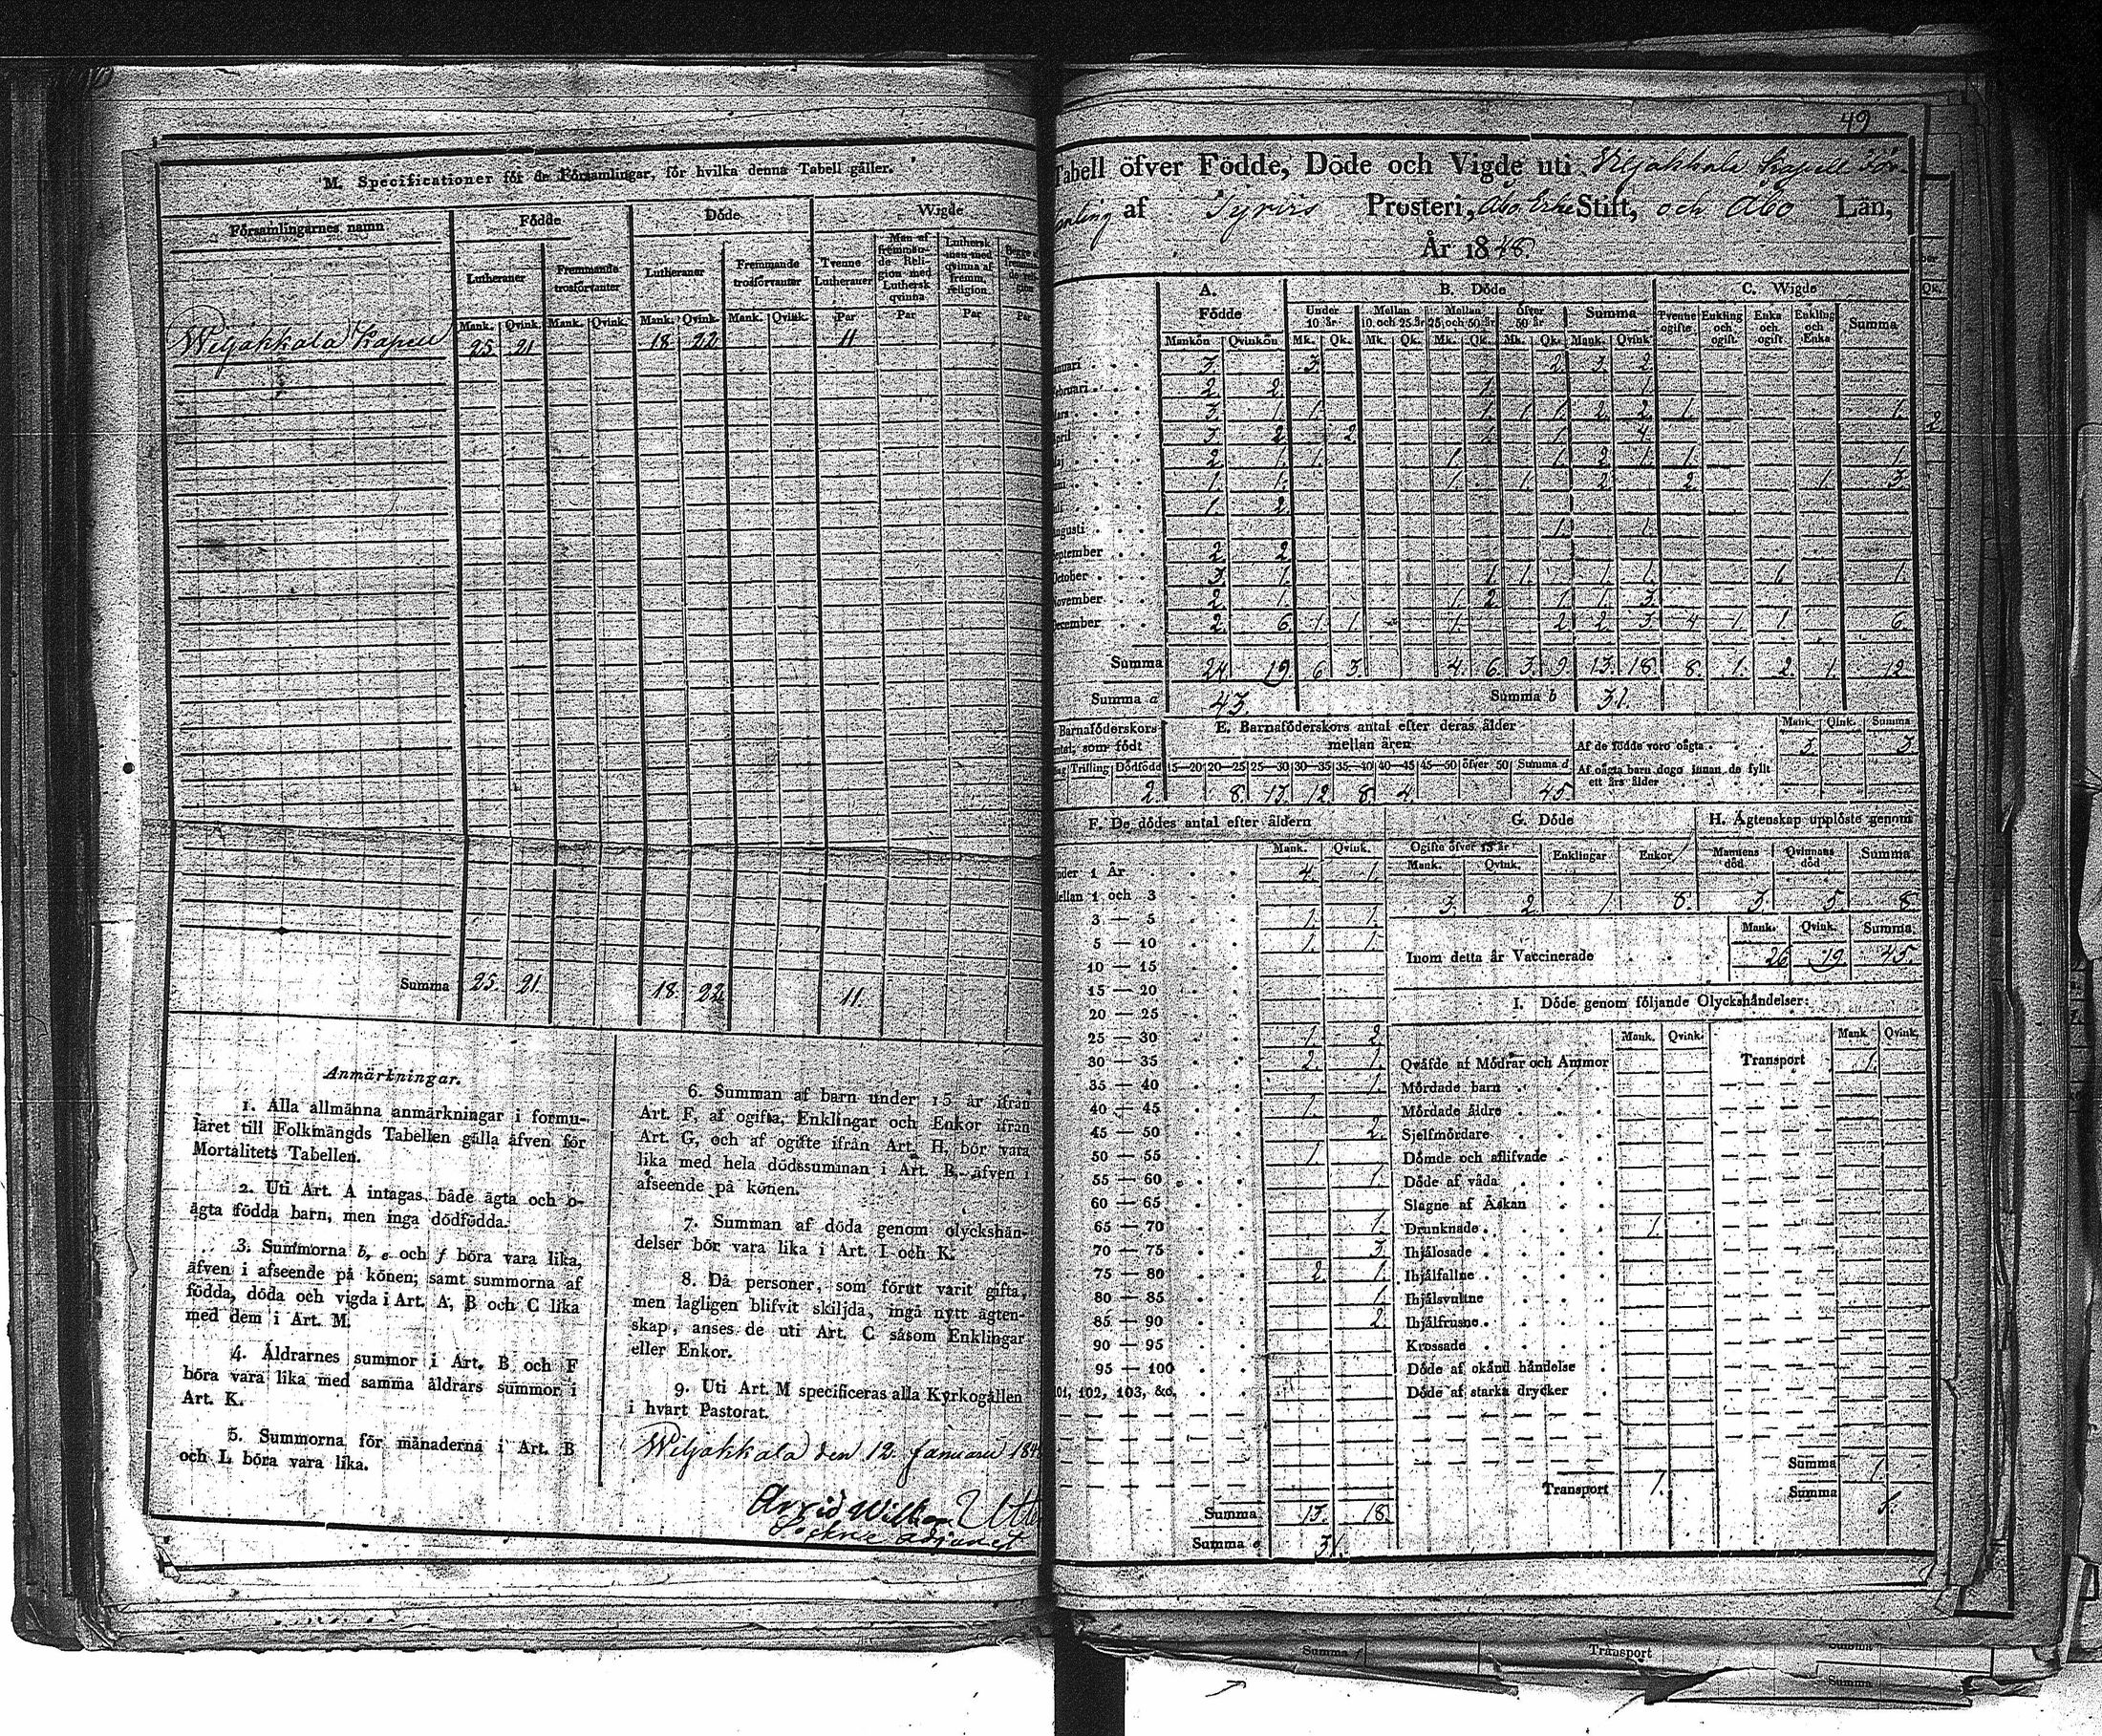 M. Specificationer för de Församlingar, för hvilka denna Tabell gäller.
Församlingarnes namn Födde Döde Wigde
Lutheraner Fremmande trosförvanter Lutheraner Fremmande trosförvanter Tvenne Lutheraner Man af fremmande Religion med Luthersk qvinna Luthersk man med qvinna af fremm. religion
Mank. Qvink. Mank. Qvink. Mank. Qvink. Mank. Qvink. Par Par Par Par
Wiljakkala Kapell 25 21 18 22 11
Summa 25. 21. 18 22 11.
Anmärkningar.
1. Alla allmänna anmärkningar i formu-
läret till Folkmängds Tabellen gälla äfven för
Mortalitets Tabellen.
2. Uti Art. A intagas både ägta och o-
ägta födda barn, men inga dödfödda.
3. Summorna b, e och f böra vara lika,
äfven i afseende på könen; samt summorna af
födda, döda och vigda i Art. A, B och C lika
med dem i Art. M.
4. Åldrarnes summor i Art. B och F
böra vara lika med samma åldrars summor i
Art. K.
5. Summorna för månaderna i Art. B
och L böra vara lika.
6. Summan af barn under 15 år ifrån
Art. F, af ogifta, Enklingar och Enkor ifrån
Art. G, och af ogifte ifrån Art. H, bör vara
lika med hela dödssumman i Art. B, äfven i
afseende på könen.
7. Summan af döda genom olyckshän-
delser bör vara lika i Art. I och K.
8. Då personer, som förut varit gifta,
men lagligen blifvit skiljda, ingå nytt ägten-
skap, anses de uti Art. C såsom Enklingar
eller Enkor.
9. Uti Art. M specificeras alla Kyrkogällen
i hvart Pastorat.
Wiljakkala den 12 Januari
Arvid William
49
Tabell öfver Födde, Döde och Vigde uti Viljakkala Kapell För-
samling af Tyrvis Prosteri, Åbo Erke Stift, och Åbo Län,
År 1848.
A. B. Döde C. Wigde
Födde Under 10 år Mellan 10 och 25 år Mellan 25 och 50 år Öfver 50 år Summa Tvenne ogifte Enkling och ogift Enka och ogift Enkling och Enka Summa
Mankön Qvinkön Mk. Qk. Mk. Qk. Mk. Qk. Mk. Qk. Mank. Qvink
Januari 3. 3. 2 3. 2.
Februari 2. 2. 1. 1.
Mars 3. 1. 1. 1. 1 1. 2. 2. 1. 1.
April 3. 2. 2. 1. 1. 4.
Maj 2. 1. 1. 1. 1. 2. 1. 1. 1.
Juni 1. 1. 1. 1. 2. 2. 1. 3.
Juli 1. 2.
Augusti 1. 1.
September 2. 2.
October 3. 1. 1. 1. 1. 1. 1. 1.
November 2. 1. 1. 2. 1. 1. 3.
December 2. 6. 1. 1. 1. 2. 2. 3. 4. 1. 1. 6.
Summa 24. 19. 6 3. 4. 6. 3. 9 13. 18. 8. 1. 2. 1. 12.
Summa a 43. Summa b 31.
Barnaföderskors antal, som födt E. Barnaföderskors antal efter deras ålder mellan åren Mank. Qink. Summa
Af de födde voro oägta 3. 3
Trilling Dödfödd 15—20 20—25 25—30 30—35 35—40 40—45 45—50 öfver 50 Summa d Af oägta barn dogo innan de fyllt ett års ålder
2. 8. 13. 12. 8. 4. 45.
F. De dödes antal efter åldern G. Döde H. Ägtenskap upplöste genom
Mank. Qvink. Ogifte öfver 15 år Mank. Qvink. Enklingar Enkor Mannens död Qvinnans död Summa
Under 1 År 4. 1.
Mellan 1 och 3
3. 2. 1. 8. 3. 5. 8.
3 — 5 1. 1.
5 — 10 1. 1.
Mank. Qvink. Summa
Inom detta år Vaccinerade 26 19. 45.
10 — 15
15 — 20
20 — 25
25 — 30 1. 2.
30 — 35 2. 1.
35 — 40 1.
40 — 45 1.
45 — 50 2.
50 — 55 1.
55 — 60 1.
60 — 65
65 — 70 1.
70 — 75 3.
75 — 80 2. 1.
80 — 85 1.
85 — 90 2.
90 — 95
95 — 100
101, 102, 103, &c.
Summa 13. 18.
Summa e 31.
I. Döde genom följande Olyckshändelser:
Mank. Qvink. Mank Qvink.
Qväfde af Mödrar och Ammor Transport 1.
Mördade barn
Mördade äldre
Sjelfmördare
Dömde och aflifvade
Döde af våda
Slagne af Åskan
Drunknade 1.
Ihjälosade
Ihjälfallne
Ihjälsvultne
Ihjälfrusne
Krossade
Döde af okänd händelse
Döde af starka drycker
Summa 1.
Transport 1. Summa 1.
Summa f Transport Summa
Summa